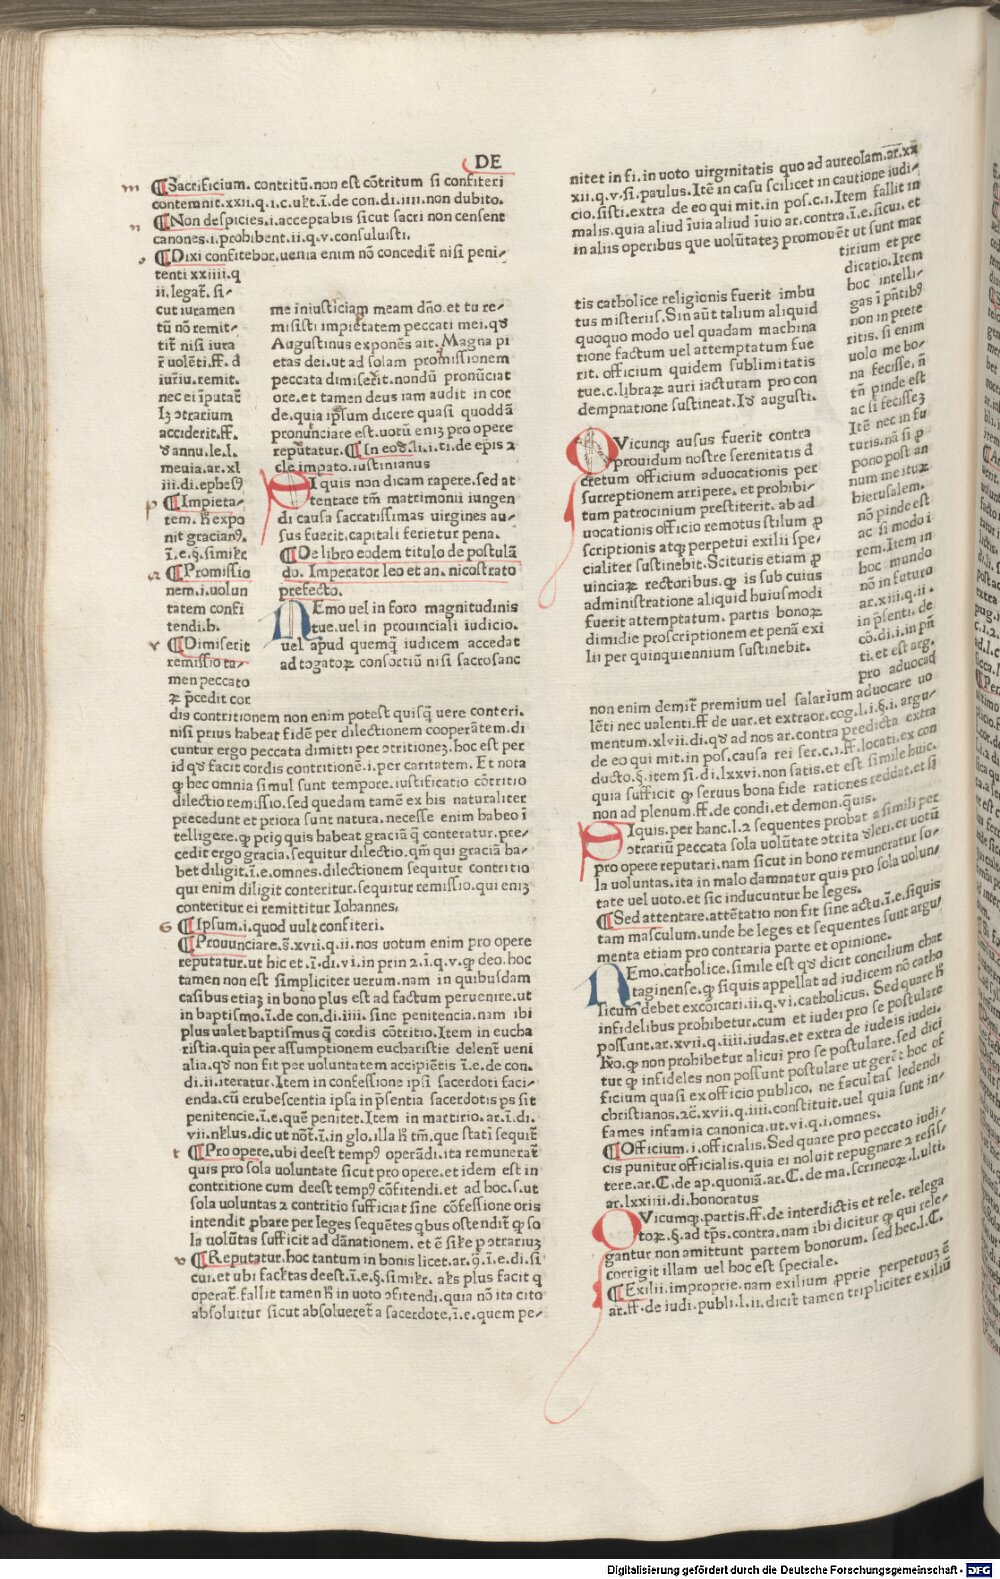 DE
¶Sacrificium. contritū.non est cōtritum si confiteri
contemnit.xxii.q.i.c.ult.ī.de con.di.iiii.non dubito.
¶Non despicies.i.acceptabis sicut sacri non censent
canones.i.prohibent.ii.q.v.consuluisti.
¶Dixi confitebor.uenia enim nō concedit̄ nisi peni-
tenti xxiiii.q
ii.legat̄. si-
cut iuramen
tū nō remit-
tit̄ nisi iura
r̄ uolēti.ff. d
iur̄iu.remit.
nec ei īputat̄
lꝫ ↄtrarium
acciderit.ff.
ď annu.le.l.
meuia.ar.xl
iii.di.ephesꝰ
¶Impieta-
tem. h̄ expo
nit gracianꝰ.
ī.e.§.simikr
¶Promissio
nem.i.uolun
tatem confi
tendi.b.
¶Dimiserit
remissio ta-
men peccato
ꝝ p̄cedit cor
me iniusticiam meam dn̄o.et tu re-
misisti impietatem peccati mei.qď
Augustinus exponēs ait. Magna pi
etas dei.ut ad solam promissionem
peccata dimiserit.nondū pronūciat
ore.et tamen deus iam audit in cor
de.quia ipsum dicere quasi quoddā
pronunciare est.uotū eniꝫ pro opere
reputatur.¶In eoď.li.i.ti.de ep̄is ⁊
cle impato.iustinianus
SIquis non dicam rapere.sed at
tentare tm̄ matrimonii iungen
di causa sacratissimas virgines au-
sus fuerit.capitali ferietur pena.
¶De libro eodem titulo de postulā
do. Imperator leo et an. nicostrato
prefecto.
NEmo uel in foro magnitudinis
tue.uel in prouinciali iudicio.
uel apud quemꝗ̄ iudicem accedat
ad togatoꝝ consortiū nisi sacrosanc
dis contritionem non enim potest quisꝗ̄ uere conteri.
nisi prius habeat fidē per dilectionem cooperātem.di
cuntur ergo peccata dimitti per ↄtritioneꝫ.hoc est per
id qď facit cordis contritionē.i.per caritatem. Et nota
ꝙ hec omnia simul sunt tempore.iustificatio cōtritio
dilectio remissio.sed quedam tamē ex his naturaliter
precedunt et priora sunt natura.necesse enim habeo ī
telligere.ꝙ priꝰ quis habeat graciā ꝗ̄ conteratur.pre-
cedit ergo gracia.sequitur dilectio.qm̄ qui graciā ha-
bet diligit.ī.e.omnes.dilectionem sequitur contritio
qui enim diligit conteritur.sequitur remissio.qui eniꝫ
conteritur ei remittitur Iohannes.
¶Ipsum.i.quod uult confiteri.
¶Prouunciare.s̄.xvii.q.ii.nos uotum enim pro opere
reputatur.ut hic et.ī.di.vi.in prin ⁊.i.q.v.ꝙ deo.hoc
tamen non est simpliciter uerum.nam in quibusdam
casibus etiaꝫ in bono plus est ad factum peruenire.ut
in baptismo.ī.de con.di.iiii.sine penitencia.nam ibi
plus ualet baptismus ꝗ̄ cordis cōtritio.Item in eucha
ristia.quia per assumptionem eucharistie delent̄ ueni
alia.qď non fit per uoluntatem accipiētis ī.e.de con.
di.ii.iteratur.Item in confessione ipsi sacerdoti faci-
enda.cū erubescentia ipsa in p̄sentia sacerdotis p̄s sit
penitencie.ī.e.quē penitet.Item in martirio.ar.ī.di.
vii.nkłus.dic ut nōt̄.ī.in glo.illa h̄ tm̄.que statī sequit̄
¶Pro opere.ubi deest tempꝰ operādi.ita remunerat̄
quis pro sola uoluntate sicut pro opere.et idem est in
contritione cum deest tempꝰ cōfitendi.et ad hoc.s.ut
sola uoluntas ⁊ contritio sufficiat sine cōfessione oris
intendit ꝓbare per leges sequētes ꝗbus ostendit̄ ꝙ so
la uolūtas sufficit ad dānationem. et ē sil̄e p ↄtrariuꝫ
¶Reputatur.hoc tantum in bonis licet.ar.ꝗ̄.ī.e.di.si
cui.et ubi facktas deest.ī.e.§.simikr. aks plus facit q
operat̄.fallit tamen h̄ in uoto ↄfitendi.quia nō ita cito
absoluitur sicut absolueret̄ a sacerdote.ī.e.quem pe-
nitet in fi.in uoto uirginitatis quo ad aureolam.ar.xx
xii.q.v.si.paulus.Itē in casu scilicet in cautione iudi-
cio.sisti.extra de eo qui mit.in pos.c.i.Item fallit in
malis.quia aliud īuia aliud īuio ar.contra.ī.e.sicui. et
in aliis operibus que uolūtateꝫ promouēt ut sunt mar
tirium et pre
dicatio.Item
hoc intelli-
gas ī pn̄tibꝰ
non in prete
ritis. si enim
uolo me bo-
na fecisse, n̄
tn̄ pinde est
ac si fecisseꝫ
Itē nec in fu
turis.nā si ꝓ
pono post an
num me ituꝝ
hierusalem.
nō pinde est
ac si modo i
rem.Item in
hoc mundo
nō in futuro
ar.xiii.q.ii.
in p̄senti. de
cō.di.i.in pn̄
ti.et est arg.
pro aduocad
tis catholice religionis fuerit imbu
tus misteriis.Sin aūt talium aliquid
quoquo modo uel quadam machina
tione factum uel attemptatum fue
rit. officium quidem sublimitatis
tue.c.libraꝝ auri iacturam pro con
dempnatione sustineat.Iď augusti.
QVicunꝗ ausus fuerit contra
prouidum nostre serenitatis d
cretum officium aduocationis per
surreptionem arripere. et prohibi-
tum patrocinium prestiterit. ab ad
uocationis officio remotus stilum ꝓ
scriptionis atꝗ perpetui exilii spe-
cialiter sustinebit.Scituris etiam ꝓ
uinciaꝝ rectoribus.ꝙ is sub cuius
administratione aliquid huiusmodi
fuerit attemptatum. partis bonoꝝ
dimidie proscriptionem et penā exi
lii per quinquiennium sustinebit.
non enim demit̄ premium uel salarium aduocare uo
lēti nec ualenti.ff de uar.et extraor.cog.l.i.§.i. argu-
mentum.xlvii.di.qď ad nos ar.contra predicta extra
de eo qui mit.in pos.causa rei ser.c.i.ff.locati.ex con
ducto.§.item si.di.lxxvi.non satis.et est simile huic.
quia sufficit ꝙ seruus bona fide rationes reddat.et si
non ad plenum.ff.de condi.et demon.quis.
SIquis.per hanc.l.⁊ sequentes probat a simili per
ↄtrariū peccata sola uolūtate ↄtrita ďleri.et uotū
pro opere reputari.nam sicut in bono remuneratur so-
la uoluntas.ita in malo damnatur quis pro sola uolun-
tate uel uoto.et sic inducuntur he leges.
¶Sed attentare.attētatio non fit sine actu.ī.e.siquis
tam masculum.unde he leges et sequentes sunt argu-
menta etiam pro contraria parte et opinione.
NEmo.catholice.simile est qď dicit concilium char
taginense.ꝙ siquis appellat ad iudicem nō catho
licum debet excōicari.ii.q.vi.catholicus. Sed quare h̄
infidelibus prohibetur.cum et iudei pro se postulare
possunt.ar.xvii.q.iiii.iudas.et extra de iudeis iudei.
R̄o.ꝙ non prohibetur alicui pro se postulare.sed dici
tur ꝙ infideles non possunt postulare ut gerēt hoc of
ficium quasi ex officio publico. ne facultas ledendi
christianos.⁊c̄.xvii.q.iiii.constituit.uel quia sunt in-
fames infamia canonica.ut.vi.q.i.omnes.
¶Officium.i.officialis.Sed quare pro peccato iudi-
cis punitur officialis.quia ei noluit repugnare ⁊ resis-
tere.ar.C.de ap.quoniā.ar.C.de ma.scrineoꝝ.l.ulti.
ar.lxxiiii.di.honoratus
QVicumꝗ.partis.ff.de interdictis et rele. relega
toꝝ.§.ad tp̄s.contra.nam ibi dicitur ꝙ qui rele-
gantur non amittunt partem bonorum. sed hec.l.C.
corrigit illam uel hoc est speciale.
¶Exilii.improprie.nam exilium ꝓprie perpetuuꝫ ē
ar.ff.de iudi.publi.l.ii.dicit̄ tamen tripliciter exiliū
Digitalisierung gefördert durch die Deutsche Forschungsgemeinschaft - DFG